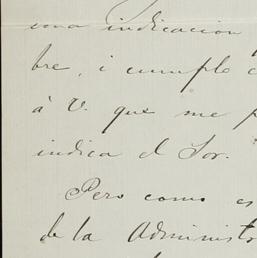 una indicacion
bre, i cumplo c
á V. que me p
indica el Sor.
Pero como es
de la Administ